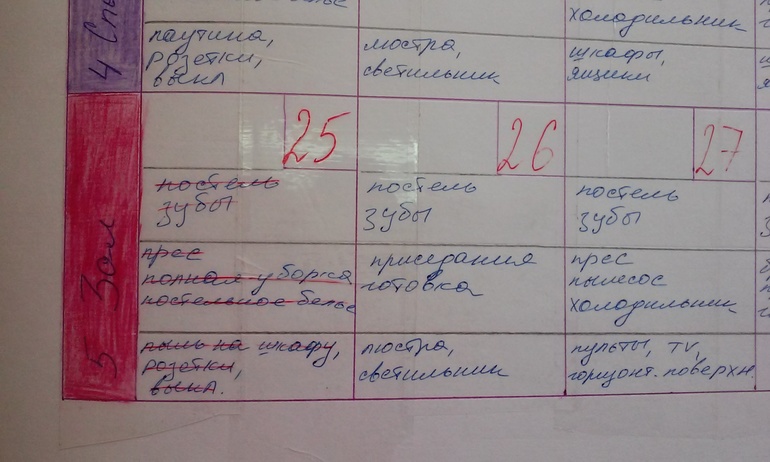 холодильник
4 Сп
паутина,
розетки,
выкл
люстра,
светильник
шкафы,
ящики
25
26
27
5 Зал
постель
зубы
постель
зубы
постель
зубы
прес
полная уборка
постельное белье
приседания
готовка
прес
пылесос
холодильник
пыль на шкафу,
розетки,
выкл.
люстра,
светильник
пульты, TV,
горизонт. поверхн.